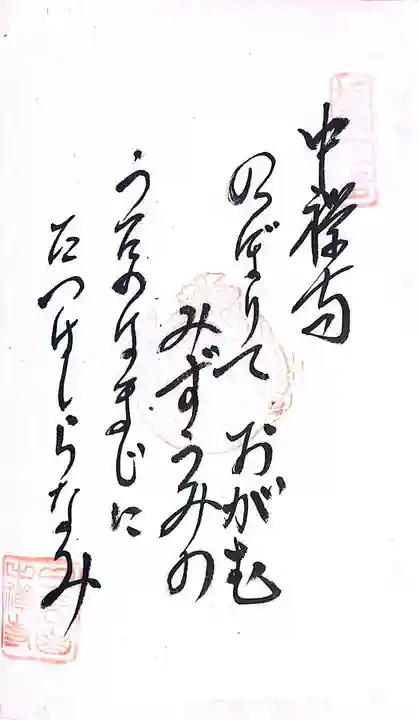 中禅寺
のぼりて おがむ
みずうみの
うたのはまじに
たつはしらなみ